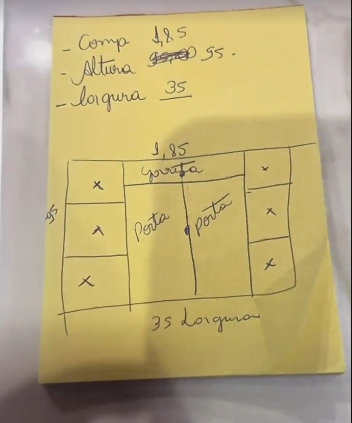 - Comp 1,85
- Altura 95.
- largura 35
1,85
gaveta
95
Porta
Porta
35 Largura